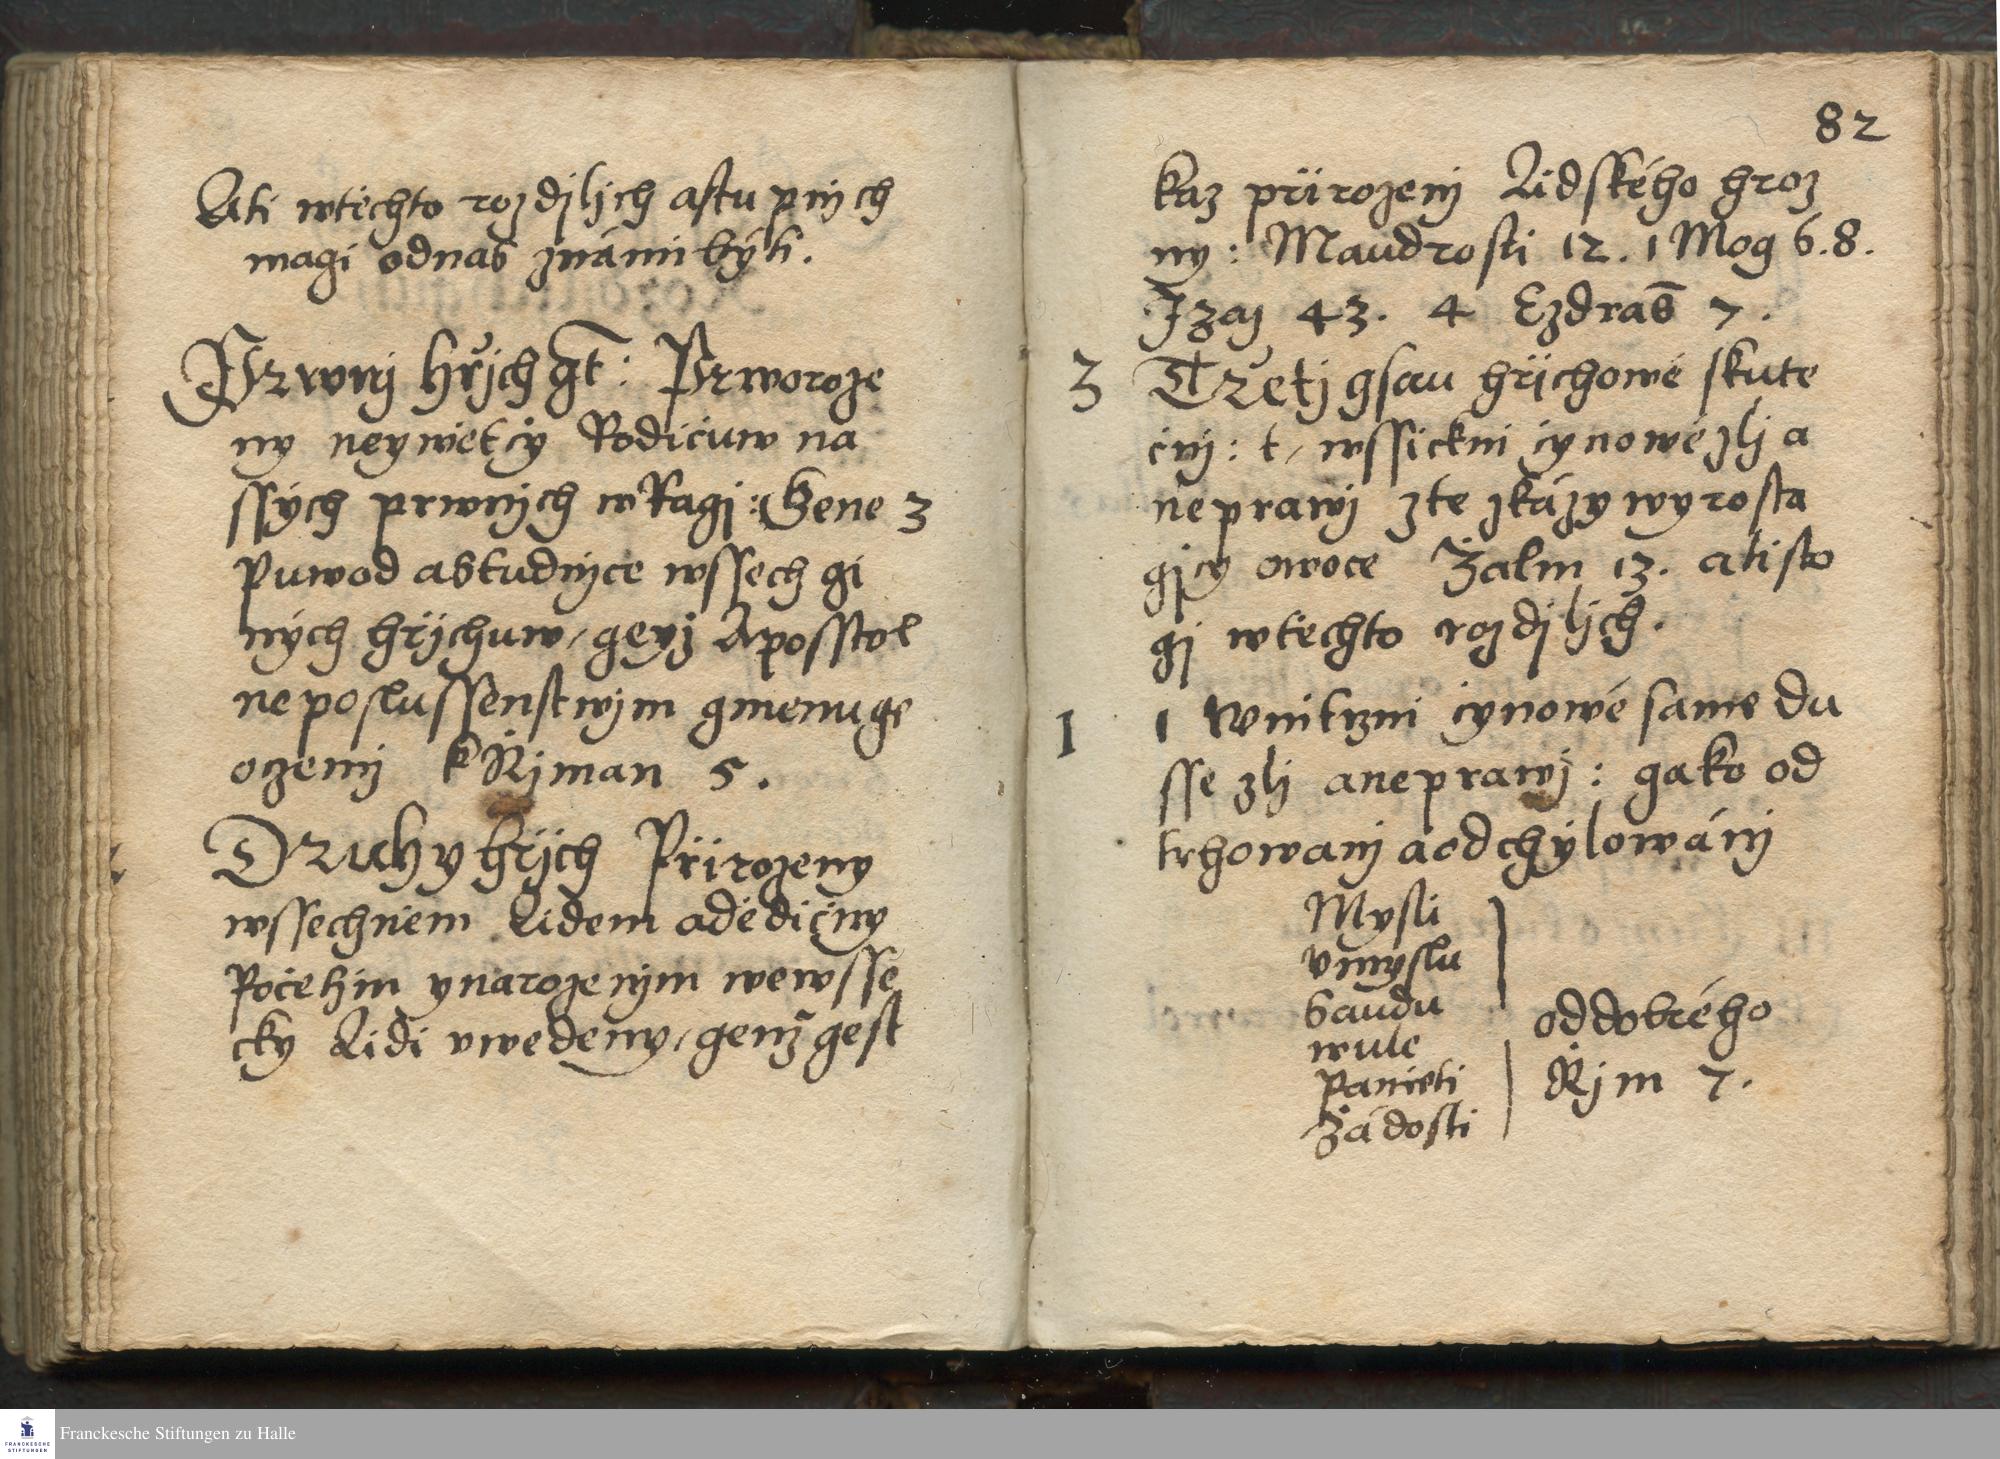 Ati wtěchto rozdjljch astupnjch
magi odnas známi býti.
Prwnj hřjch gt: Prworoze
ny neywětčy Rodičuw na
ssých prwnjch wRagj: Gene 3
Puwod astudnyce wssech gi
ných hřjchuw, geyž Aposstol
neposlussenstwjm gmenuge
ozemj k Řjman 5.
Druhy hřjch Přirozeny
wssechněm Lidem adědičny
Početjm ynarozenjm wewsse
cky Lidi vwedeny, genž gest
82
kaz přirozenj Lidského hroz
ny: Maudrosti 12. 1 Mog 6.8.
Jzaj 43. 4 Ezdras 7.
3 Třetj gsau hřjchowé skute
čnj: t, wssickni čynowé zlj a
neprawj zte zkázy wyrosta
gjcy owoce Žalm 13. atisto
gj wtěchto rozdjljch.
1 1 Wnitrzni čynowé same du
sse zlj aneprawj: gako od
trhowanj aodchylowánj
Mysli
vmyslu
saudu
wule
Paměti
Žádosti
oddobrého
Řjm 7.
Franckesche Stiftungen zu Halle
FRANCKESCHE
STIFTUNGEN